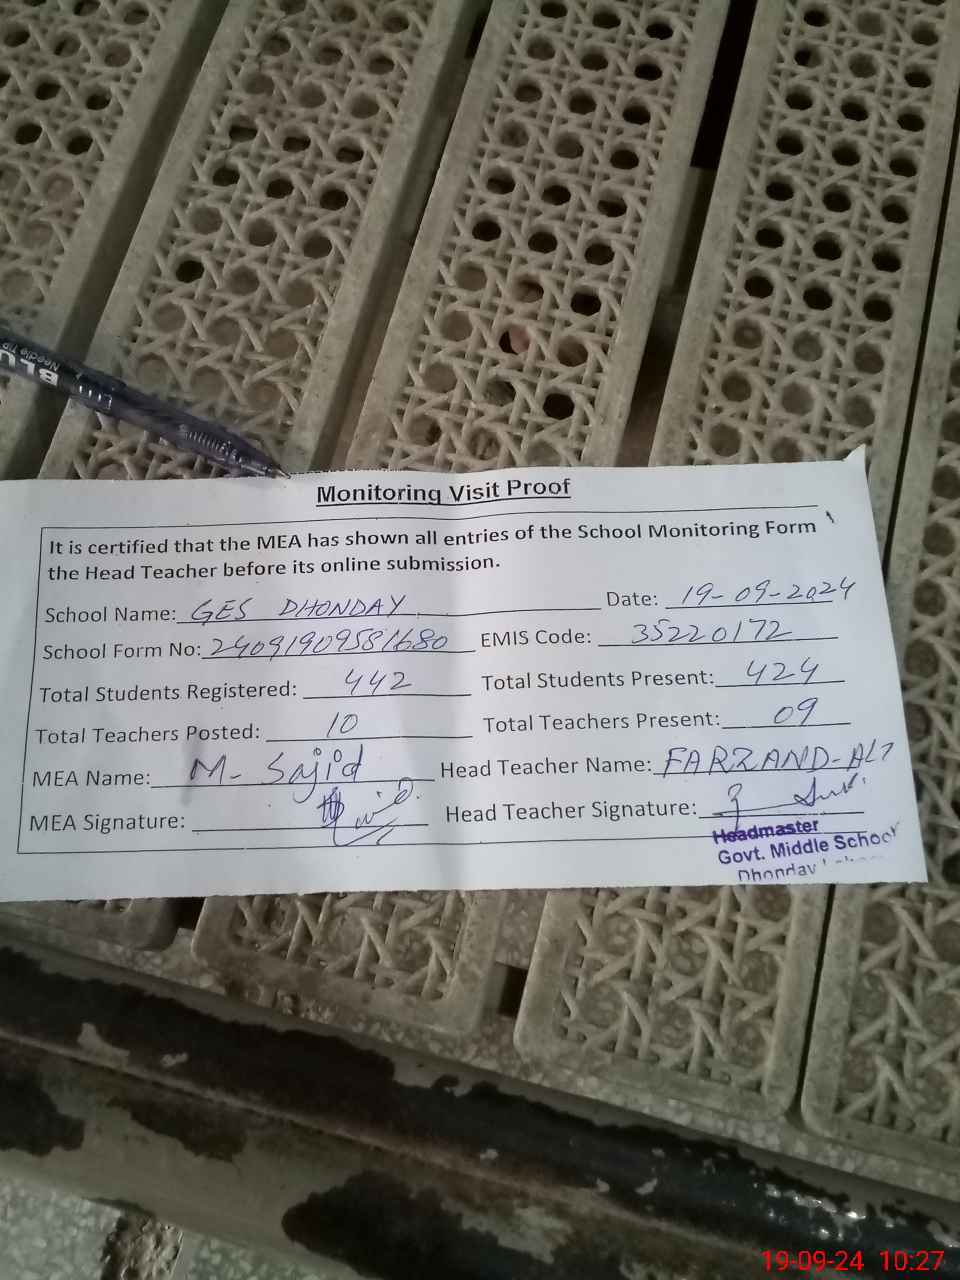 BLU
Needle Tip
Monitoring Visit Proof
It is certified that the MEA has shown all entries of the School Monitoring Form
the Head Teacher before its online submission.
School Name: GES DHONDAY Date: 19-09-2024
School Form No: 24091909581680 EMIS Code: 35220172
Total Students Registered: 442 Total Students Present: 424
Total Teachers Posted: 10 Total Teachers Present: 09
MEA Name: M- Sajid Head Teacher Name: FARZAND-ALI
MEA Signature: Head Teacher Signature:
Headmaster
Govt. Middle School
Dhonday
19-09-24 10:27